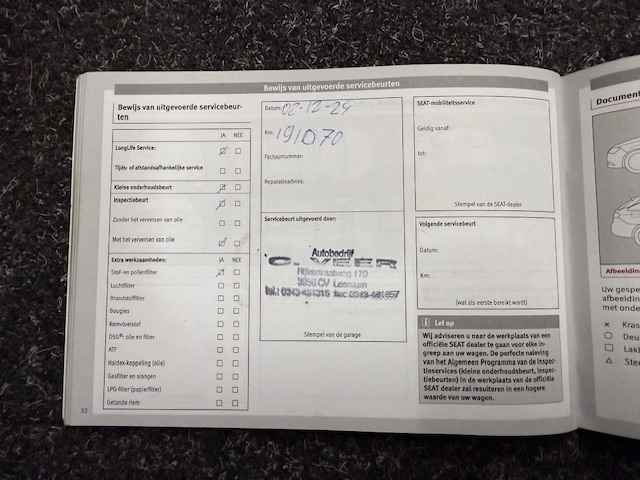 Bewijs van uitgevoerde servicebeurten
Bewijs van uitgevoerde servicebeur-
ten
JA NEE
LongLife Service:
Tijds- of afstandsafhankelijke service
JA NEE
Kleine onderhoudsbeurt
Inspectiebeurt
Zonder het verversen van olie
Met het verversen van olie
Extra werkzaamheden: JA NEE
Stof- en pollenfilter
Luchtfilter
Brandstoffilter
Bougies
Remvloeistof
DSG®: olie en filter
ATF
Haldex-koppeling (olie)
Gasfilter en slangen
LPG-filter (papierfilter)
Getande riem
Datum: 02-12-24
Km: 191070
Factuurnummer:
Reparatieadvies:
Servicebeurt uitgevoerd door:
Autobedrijf
C. VEER
3956 CV Leersum
Stempel van de garage
SEAT-mobiliteitsservice
Geldig vanaf:
tot:
Stempel van de SEAT-dealer
Volgende servicebeurt
Datum:
Km:
(wat als eerste bereikt wordt)
Let op
Wij adviseren u naar de werkplaats van een
officiële SEAT dealer te gaan voor elke in-
greep aan uw wagen. De perfecte naleving
van het Algemeen Programma van de Inspec-
tieservices (kleine onderhoudsbeurt, inspec-
tiebeurten) in de werkplaats van de officiële
SEAT dealer zal resulteren in een hogere
waarde van uw wagen.
Document
Afbeelding
Uw gespe
afbeelding
met onde
× Kras
Deu
Lak
△ Stee